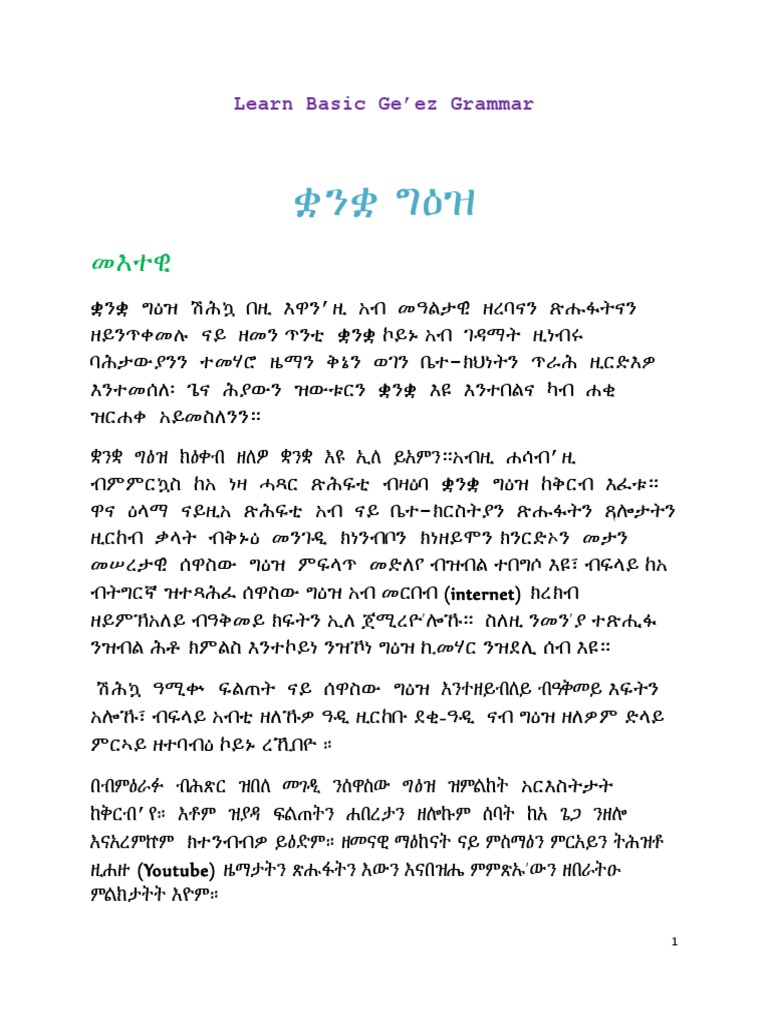 Learn Basic Ge’ez Grammar
ቋንቋ ግዕዝ
መእተዊ
ቋንቋ ግዕዝ ሽሕኳ በዚ እዋን’ዚ አብ መዓልታዊ ዘረባናን ጽሑፋትናን
ዘይንጥቀመሉ ናይ ዘመን ጥንቲ ቋንቋ ኮይኑ አብ ገዳማት ዚነብሩ
ባሕታውያንን ተመሃሮ ዜማን ቅኔን ወገን ቤተ-ክህነትን ጥራሕ ዚርድእዎ
እንተመሰለ፡ ጌና ሕያውን ዝውቱርን ቋንቋ እዩ እንተበልና ካብ ሐቂ
ዝርሐቀ አይመስለንን።
ቋንቋ ግዕዝ ክዕቀብ ዘለዎ ቋንቋ እዩ ኢለ ይአምን።አብዚ ሐሳብ’ዚ
ብምምርኳስ ከአ ነዛ ሓጻር ጽሕፍቲ ብዛዕባ ቋንቋ ግዕዝ ከቅርብ እፈቱ።
ዋና ዕላማ ናይዚአ ጽሕፍቲ አብ ናይ ቤተ-ክርስትያን ጽሑፋትን ጸሎታትን
ዚርከብ ቃላት ብቅኑዕ መንገዲ ክነንብቦን ክነዘይሞን ክንርድኦን መታን
መሠረታዊ ሰዋስው ግዕዝ ምፍላጥ መድለየ ብዝብል ተበግሶ እዩ፣ ብፍላይ ከአ
ብትግርኛ ዝተጻሕፈ ሰዋስው ግዕዝ አብ መርበብ (internet) ክረክብ
ዘይምኽአለይ ብዓቅመይ ክፍትን ኢለ ጀሚረዮ’ሎኹ። ስለዚ ንመን’ያ ተጽሒፋ
ንዝብል ሕቶ ክምልስ እንተኮይነ ንዝኾነ ግዕዝ ኪመሃር ንዝደሊ ሰብ እዩ።
ሽሕኳ ዓሚቍ ፍልጠት ናይ ሰዋስው ግዕዝ እንተዘይብለይ ብዓቅመይ እፍትን
አሎኹ፣ ብፍላይ አብቲ ዘለኹዎ ዓዲ ዚርከቡ ደቂ-ዓዲ ናብ ግዕዝ ዘለዎም ድላይ
ምርኣይ ዘተባብዕ ኮይኑ ረኺበዮ ።
በብምዕራፉ ብሕጽር ዝበለ መገዲ ንሰዋስው ግዕዝ ዝምልከት አርእስትታት
ከቅርብ’የ። እቶም ዝያዳ ፍልጠትን ሐበረታን ዘሎኩም ሰባት ከአ ጌጋ ንዘሎ
እናእረምኵም ክተንብብዎ ይዕድም። ዘመናዊ ማዕከናት ናይ ምስማዕን ምርአይን ትሕዝቶ
ዚሐዙ (Youtube) ዜማታትን ጽሑፋትን እውን እናበዝሔ ምምጽኡ’ውን ዘበራትዑ
ምልክታትት እዮም።
1